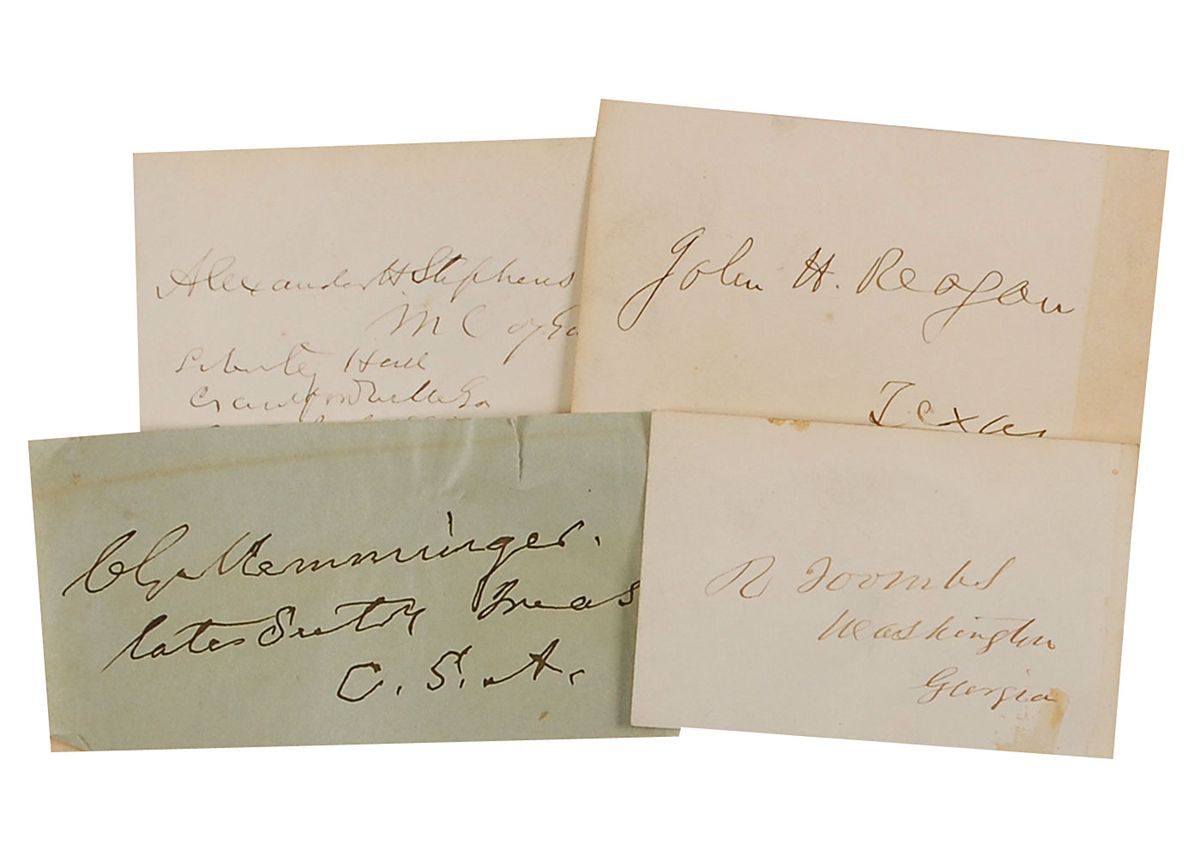 Alexander H Stephens
M C of Ga
Liberty Hall
Crawfordville Ga
John H. Reagan
Texas
C G Memminger.
late Secty Treas
C. S. A.
R Toombs
Washington
Georgia